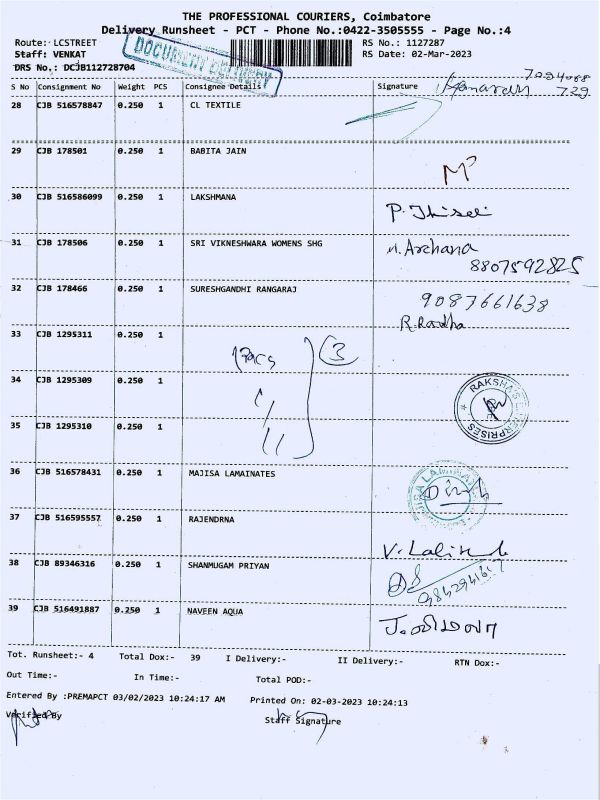 THE PROFESSIONAL COURIERS, Coimbatore
Delivery Runsheet - PCT - Phone No.:0422-3505555 - Page No.:4
Route: LCSTREET
RS No.: 1127287
Staff: VENKAT
RS Date: 02-Mar-2023
DRS No.: DCJB112728704
DOCUMENT
S No Consignment No Weight PCS Consignee Details Signature
28 CJB 516578847 0.250 1 CL TEXTILE
29 CJB 178501 0.250 1 BABITA JAIN
30 CJB 516586099 0.250 1 LAKSHMANA
31 CJB 178506 0.250 1 SRI VIKNESHWARA WOMENS SHG n. Archana
8807592825
32 CJB 178466 0.250 1 SURESHGANDHI RANGARAJ 9087661638
R. Radha
33 CJB 1295311 0.250 1
3
34 CJB 1295309 0.250 1
RAKSHA'S ENTERPRISES
35 CJB 1295310 0.250 1
36 CJB 516578431 0.250 1 MAJISA LAMAINATES
37 CJB 516595557 0.250 1 RAJENDRNA
38 CJB 89346316 0.250 1 SHANMUGAM PRIYAN
39 CJB 516491887 0.250 1 NAVEEN AQUA
Tot. Runsheet:- 4 Total Dox:- 39 I Delivery:- II Delivery:- RTN Dox:-
Out Time:- In Time:- Total POD:-
Entered By :PREMAPCT 03/02/2023 10:24:17 AM Printed On: 02-03-2023 10:24:13
Verified By Staff Signature